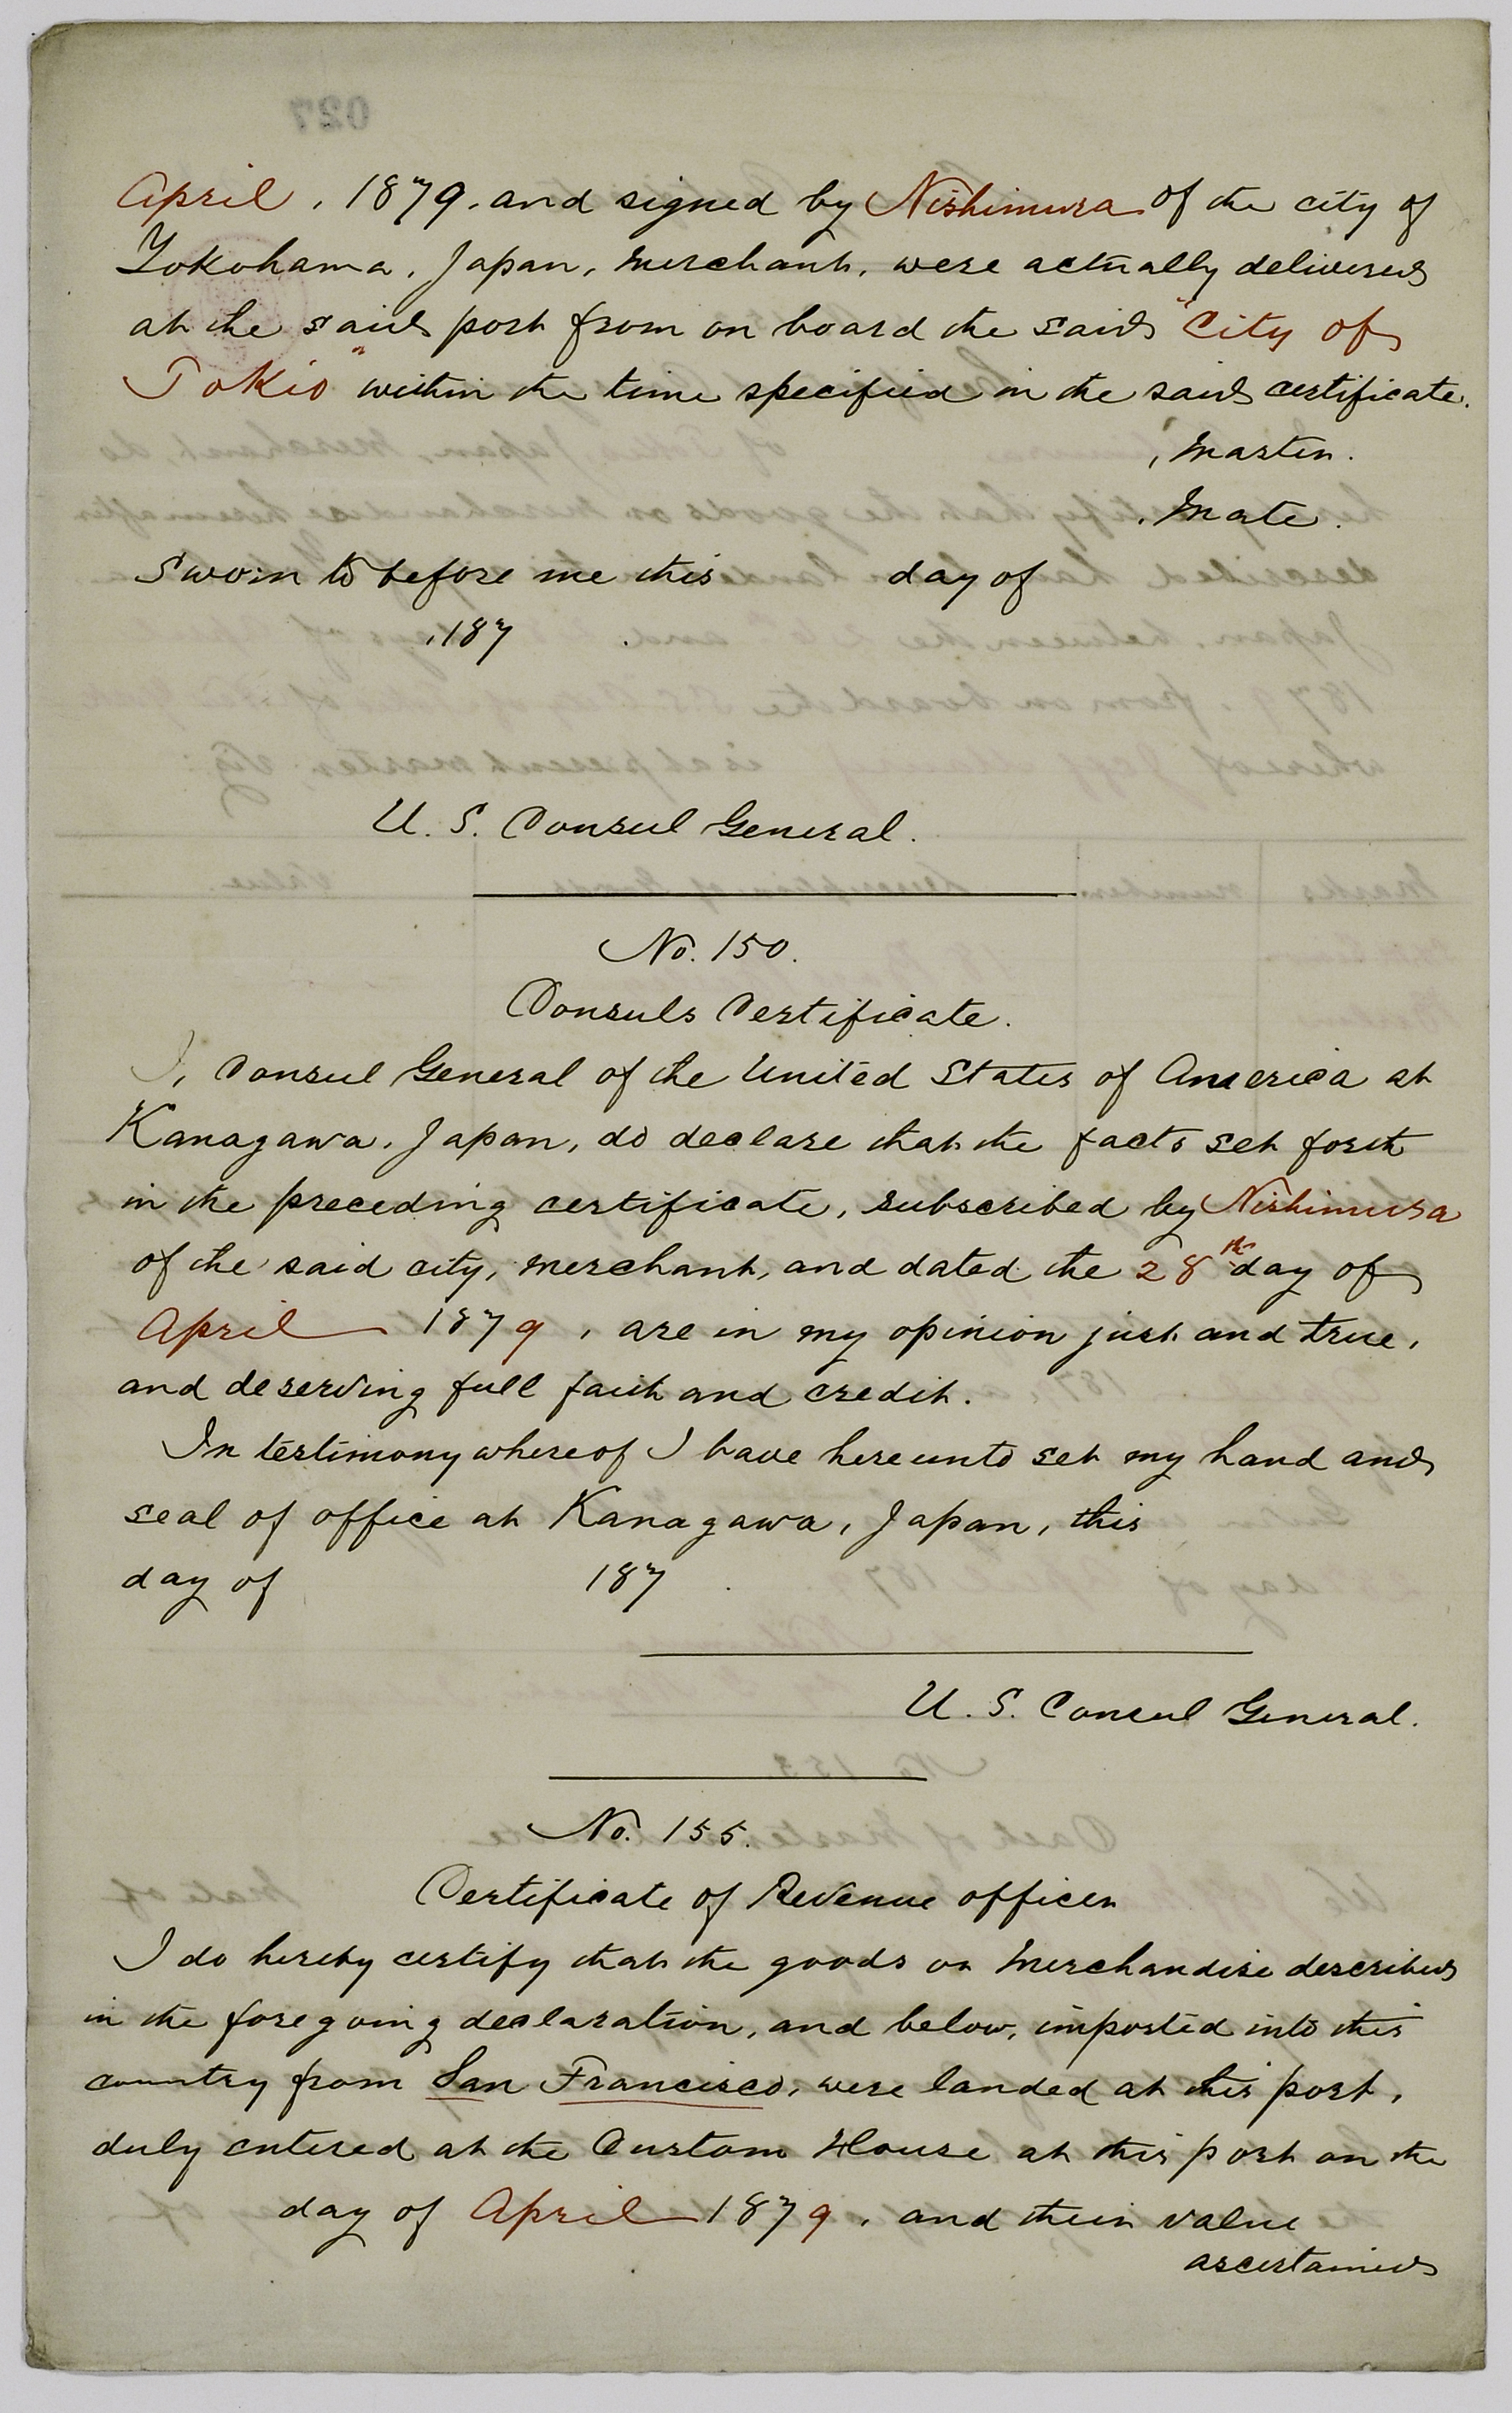 027
April, 1879, and signed by Nishimura of the city of
Yokohama, Japan, Merchant, were actually delivered
at the said port from on board the said "City of
Tokio" within the time specified in the said certificate.
, Master.
, Mate.
Sworn to before me this day of
, 187 .
U. S. Consul General.
No. 150.
Consuls Certificate.
I, Consul General of the United States of America at
Kanagawa, Japan, do declare that the facts set forth
in the preceding certificate, subscribed by Nishimura
of the said city, Merchant, and dated the 28th day of
April 1879, are in my opinion just and true,
and deserving full faith and credit.
In testimony whereof I have hereunto set my hand and
seal of office at Kanagawa, Japan, this
day of 187 .
U. S. Consul General.
No. 155.
Certificate of Revenue officer
I do hereby certify that the goods or Merchandise described
in the foregoing declaration, and below, imported into this
country from San Francisco, were landed at this port,
duly entered at the Custom House at this port on the
day of April 1879, and their value
ascertained